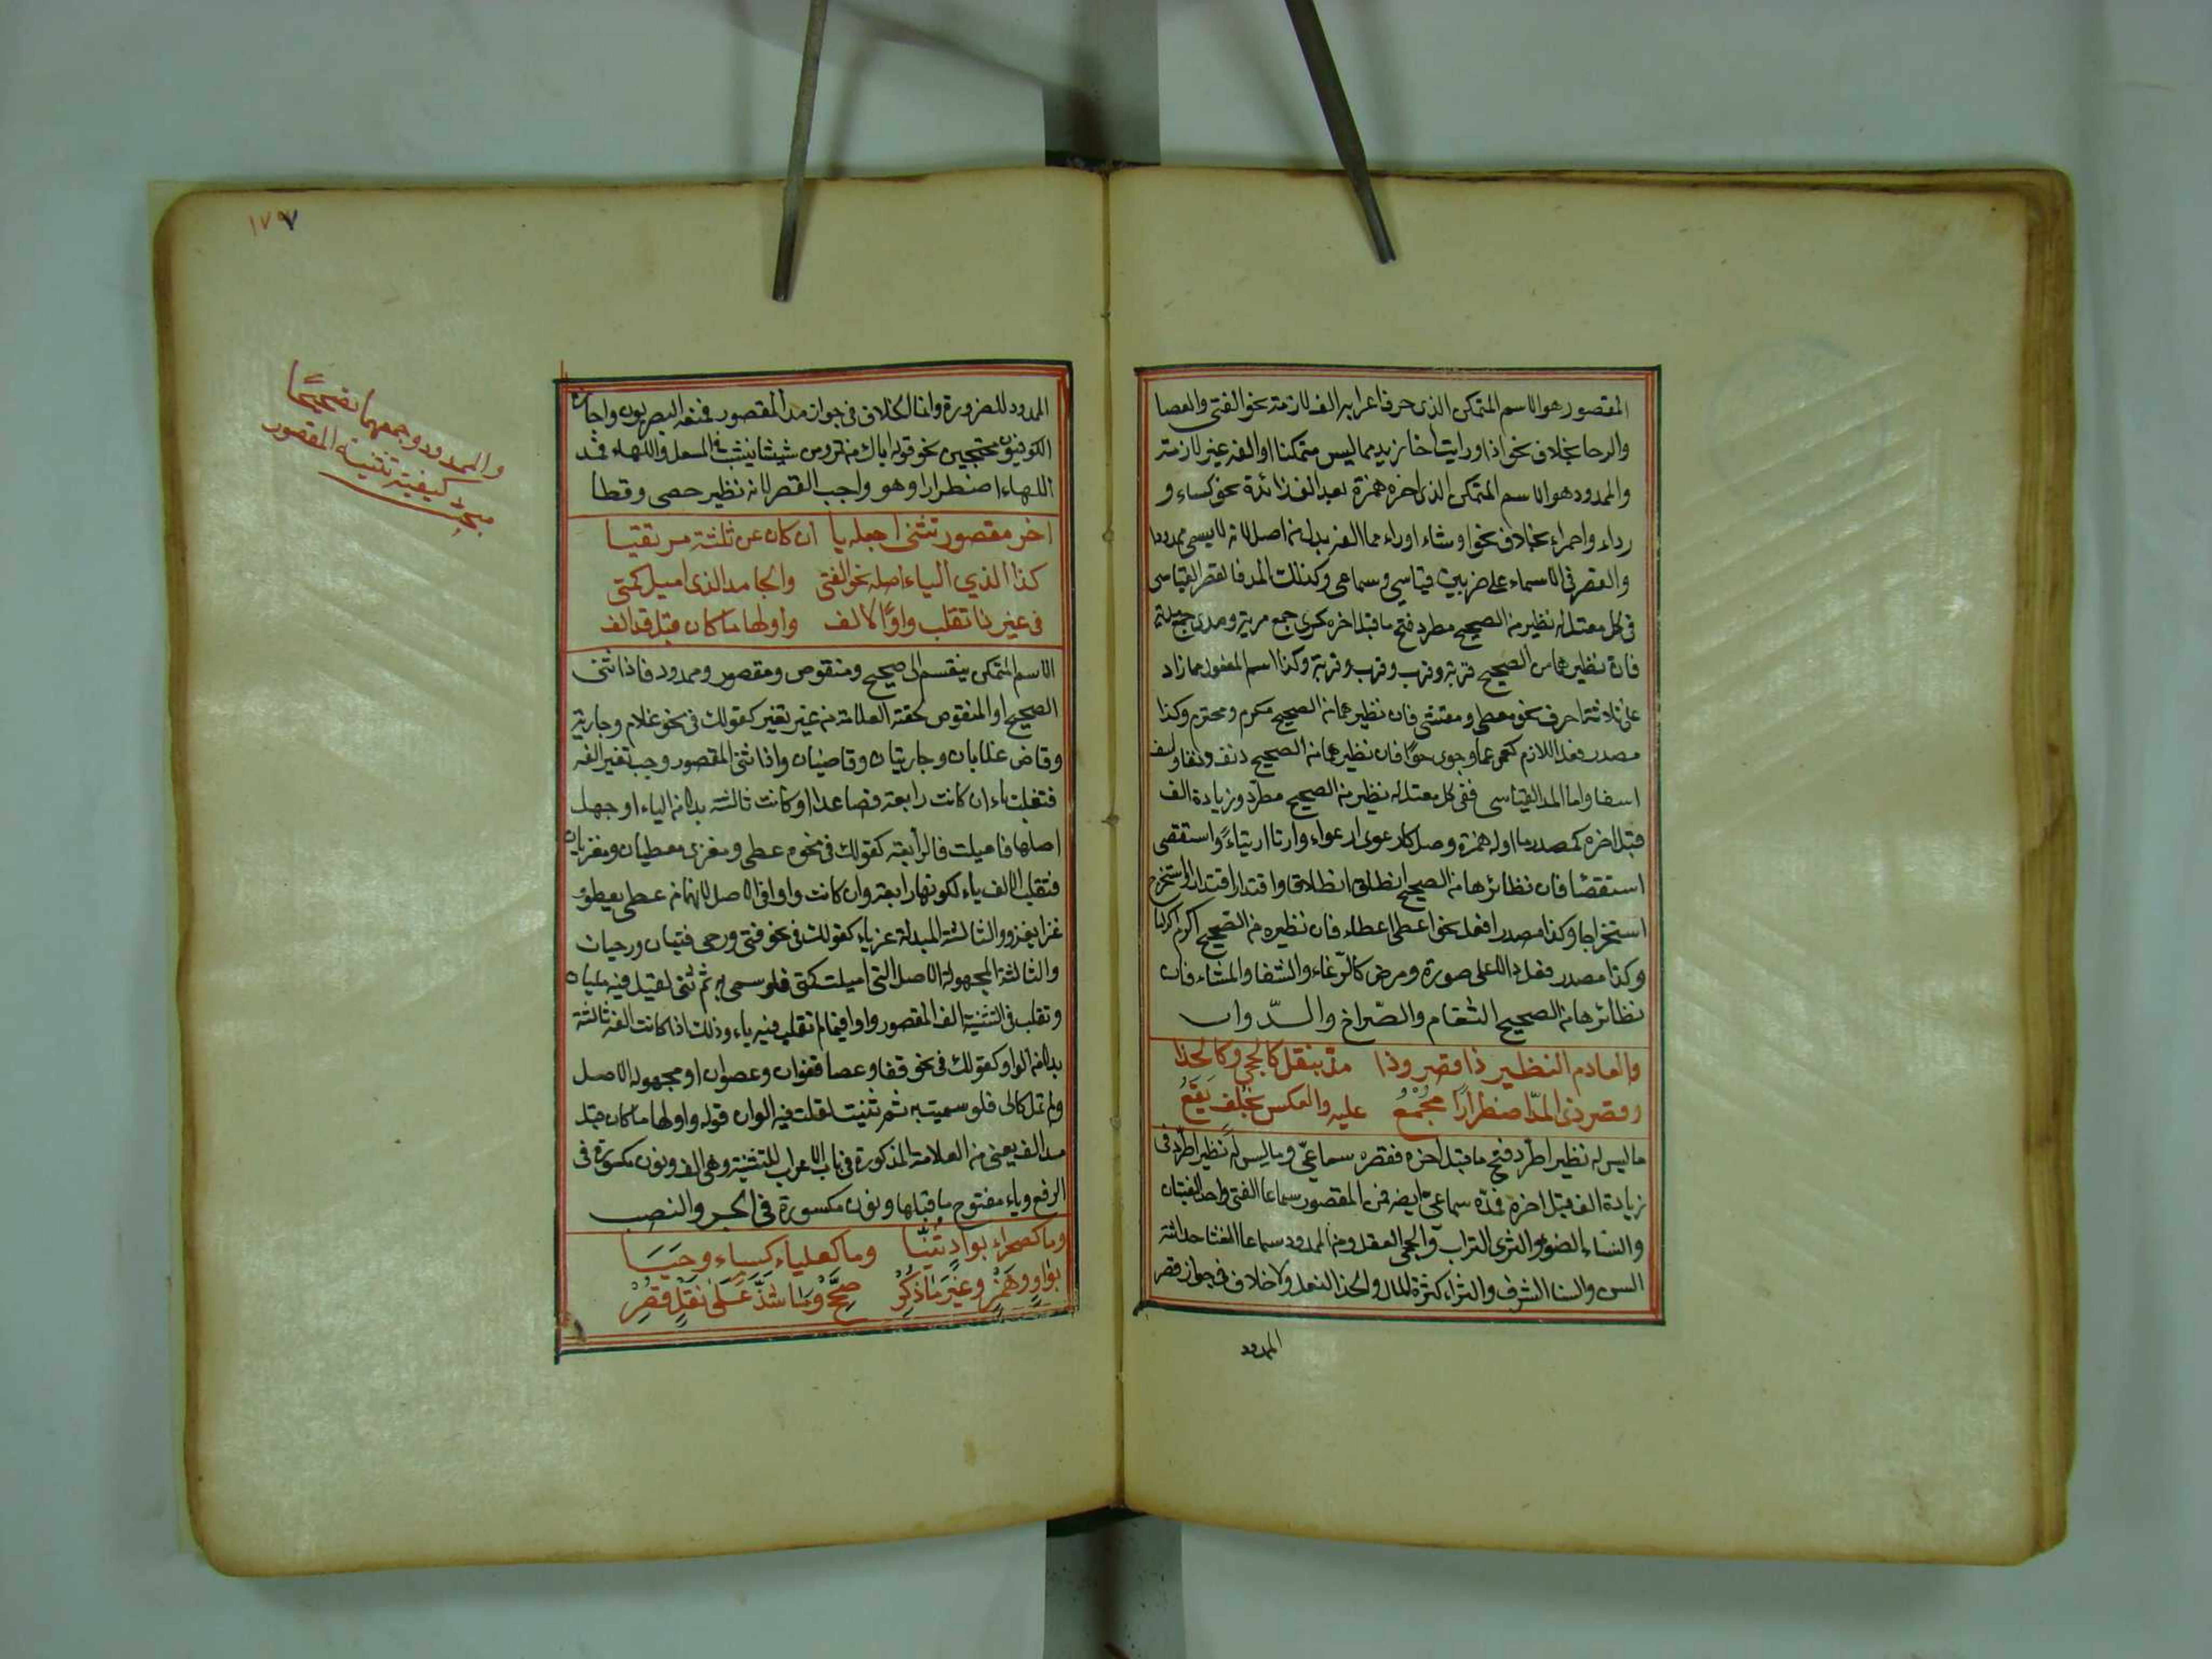 المقصور هو الاسم المتمكن الذى حرف اعرابه الف لازمة نحو الفتى والعصا
والرحا بخلاف نحو اذا ورايت اخا زيد مما ليس متمكنا او الفه غير لازمة
والممدود هو الاسم المتمكن الذى اخره همزة بعد الف زائدة نحو كساء و
رداء وحمراء بخلاف نحو او شاء اوراء مما الفه بدل من اصل لانه لا يسمى ممدودا
والقصر فى الاسماء على ضربين قياسي وسماعى وكذلك المد فالقصر القياسى
فى كل معتل له نظير من الصحيح مطرد فتح ماقبل اخره كمرى جمع مرية ومدى جمع مدية
فان نظيرهما من الصحيح قربة وقرب وقرب وقربة وكذا اسم المفعول مما زاد
على ثلاثة احرف نحو معطى ومقتنى فان نظيرهما من الصحيح مكرم ومحترم وكذا
مصدر فعل اللازم كعمى عما وجوى جوًا فان نظيرهما من الصحيح دنف دنفا واسف
اسفا واما المد القياسى ففى كل معتل له نظير من الصحيح مطرد وزيادة الف
قبل اخره كمصدر ما اوله همزة وصل كارعوى ارعواء وارتا ارتياءً واستقصى
استقصا فان نظائرها من الصحيح انطلق انطلاقا واقتدر اقتدارا واستخرج
استخراجا وكذا مصدر افعل نحو اعطى اعطاء فان نظيره من الصحيح اكرم اكراما
وكذا مصدر فعل دالا على صورة ومرض كالرّغاء والثغا والمشاء فان
نظائرها من الصحيح البغام والصّراخ والدّوار
والعادم النظير ذا قصر وذا مدّ بنقل كالحجى وكالحذا
وقصر ذى المدّ اضطرارًا مجْمَعُ عليه والعكس بخلف يَقَعُ
ماليس له نظير اطّرد فتح ماقبل اخره فقصره سماعىّ وما ليس له نظير اطّرد فى
زيادة الف قبل اخره فمدّه سماعىّ ايضا فمن المقصور سماعا الفتى واحد الفتيان
والسناء الضوؤ والثرى التراب والحجى العقل ومن الممدود سماعا الفتا حداثة
السن والسنا الشرف والثراء كثرة المال والحذا النعل ولا خلاف فى جواز قصر
الممدود
١٧٧
والممدود وجمعهما تصحيحًا
كيفية تثنية المقصور
الممدود للضرورة وانما الخلاف فى جواز مد المقصور فمنعه البصريون واجازه
الكوفيون محتجين بنحو قوله يالك من تمر ومن شيشا ينشب فى المسعل واللهاء فمد
اللهاء اضطرارا وهو واجب القصر لانه نظير حصى وقطا
اخر مقصور تثنى اجعله يا ان كان عن ثلثة مرتقيا
كذا الذي الياء اصله نحو الفتى والجامد الذى اميل كمتى
فى غير ذا تقلب واوًا الالف واولها ماكان قبل قد الف
الاسم المتمكن ينقسم الى صحيح ومنقوص ومقصور وممدود فاذا ثنى
الصحيح او المنقوص لحقته العلامة من غير تغير كقولك فى نحو غلام وجارية
وقاض غلامان وجاريتان وقاضيان واذا ثنى المقصور وجب تغير الفه
فتقلب ياء ان كانت رابعة فصاعدا او كانت ثالثة بدلا من الياء او جهل
اصلها فاميلت فالرابعة كقولك فى نحو معطى ومغزى معطيان ومغزيان
فتقلب الالف ياء لكونها رابعة وان كانت واوا فى الاصل لانهما من عطى يعطو و
غزا يغزو والثالثة المبدلة عن ياء كقولك فى نحو فتى ورحى فتيان ورحيان
والثالثة المجهولة الاصل التى اميلت كمتى فلو سمى به ثم ثنى لقيل فيه متيان
وتقلب فى التثنية الف المقصور واوا فيما لم تقلب فيه ياء وذلك اذا كانت الفه ثالثة
بدلا من الواو كقولك فى نحو قفا وعصا قفوان وعصوان او مجهولة الاصل
ولم تمل كالى فلو سميت به ثم ثنيت لقلت فيه الوان قوله واولها ماكان قبل
قد الف يعنى من العلامة المذكورة فى باب الاعراب للتثنية وهى الف ونون مكسورة فى
الرفع وياء مفتوح ماقبلها ونون مكسورة فى الجر والنصب
وما كصحراء بواو ثُنّيا وما كعلياء كساء وحَيَا
بواوٍ او هَمْزٍ وغَيْرَ ماذُكِرْ صحِّحْ وما شذّ عَلَى نَقْلٍ قصِرْ